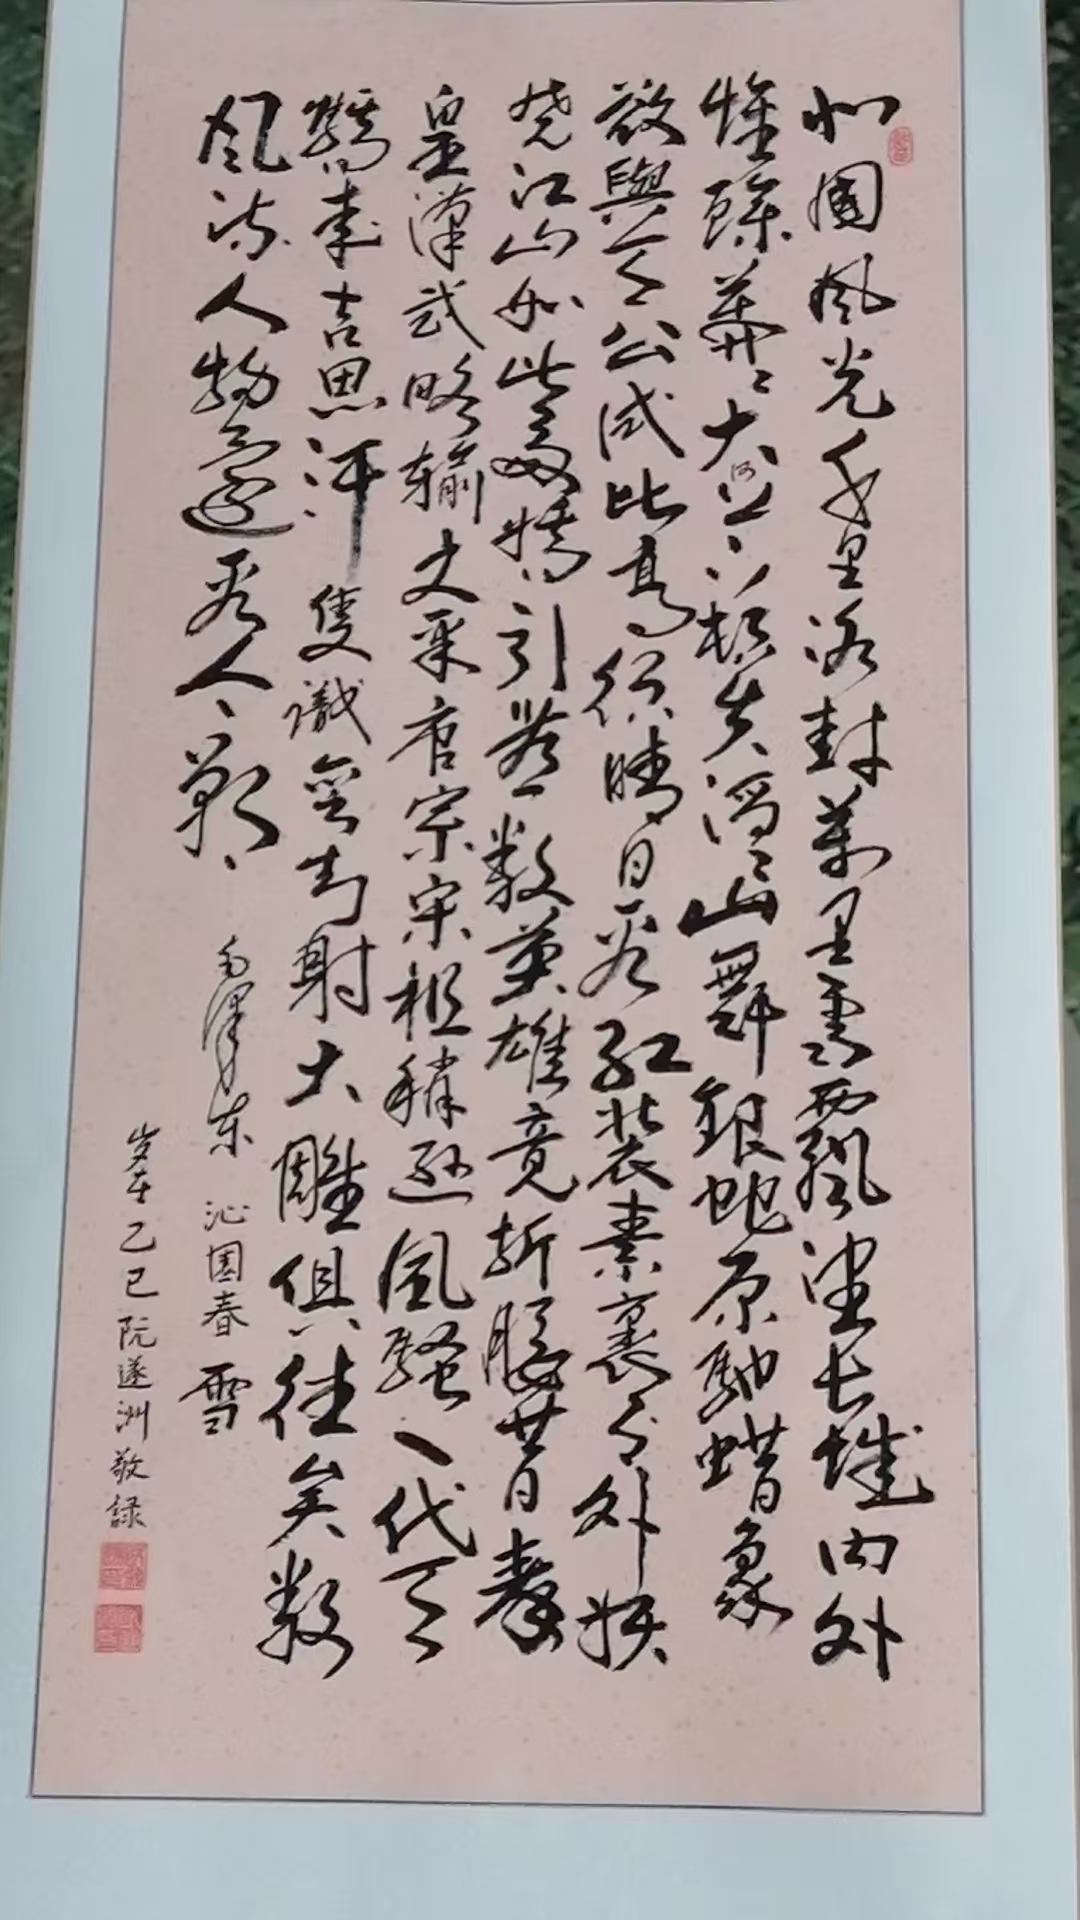 北國風光千里冰封萬里雪飄望长城内外
惟餘莽々大河上下頓失滔々山舞銀蛇原馳蜡象
欲與天公试比高须晴日看红装素裹分外妖
娆江山如此多娇引无数英雄竟折腰昔秦
皇漢武略输文采唐宗宋祖稍逊風騷一代天
驕成吉思汗隻識弯弓射大雕俱往矣数
风流人物還看今朝
毛澤东
沁園春雪
岁在乙巳阮遂洲敬録